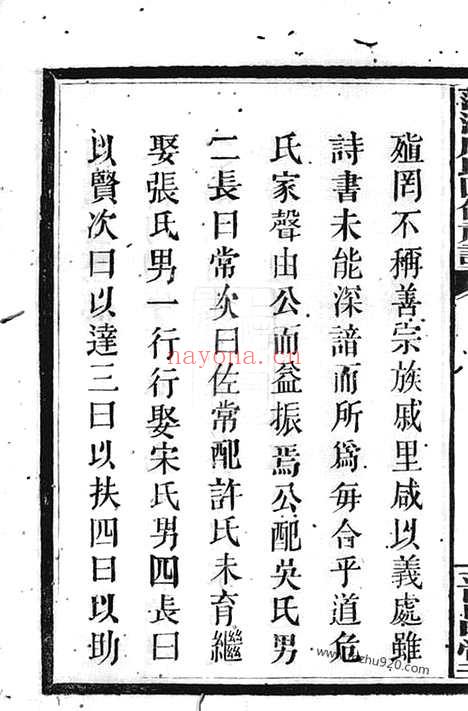 殖罔不稱善宗族戚里咸以義處雖
詩書未能深諳而所爲每合乎道危
氏家聲由公而益振焉公配吳氏男
二長曰常次曰佐常配許氏未育繼
娶張氏男一行行娶宋氏男四長曰
以賢次曰以達三曰以扶四曰以助
nayona.cn